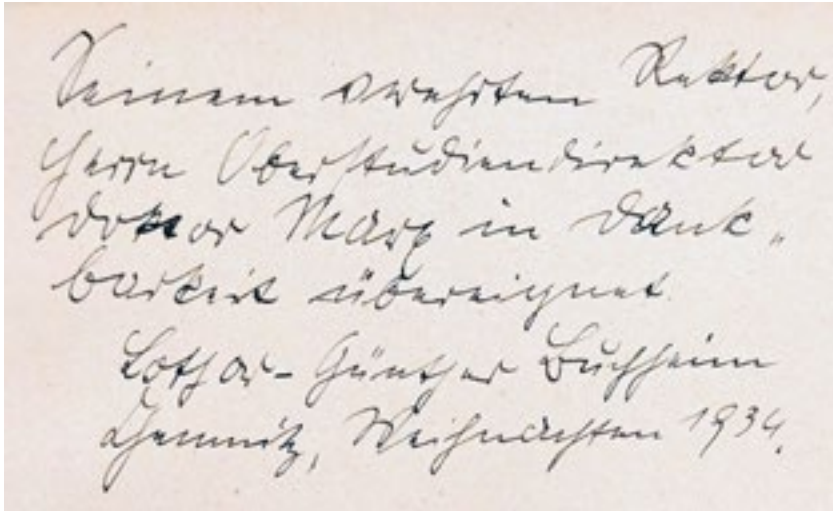 Seinem verehrten Rektor,
Herrn Oberstudiendirektor
Doktor Marx in Dank-
barkeit übereignet
Lothar-Günther Buchheim
Chemnitz, Weihnachten 1934.